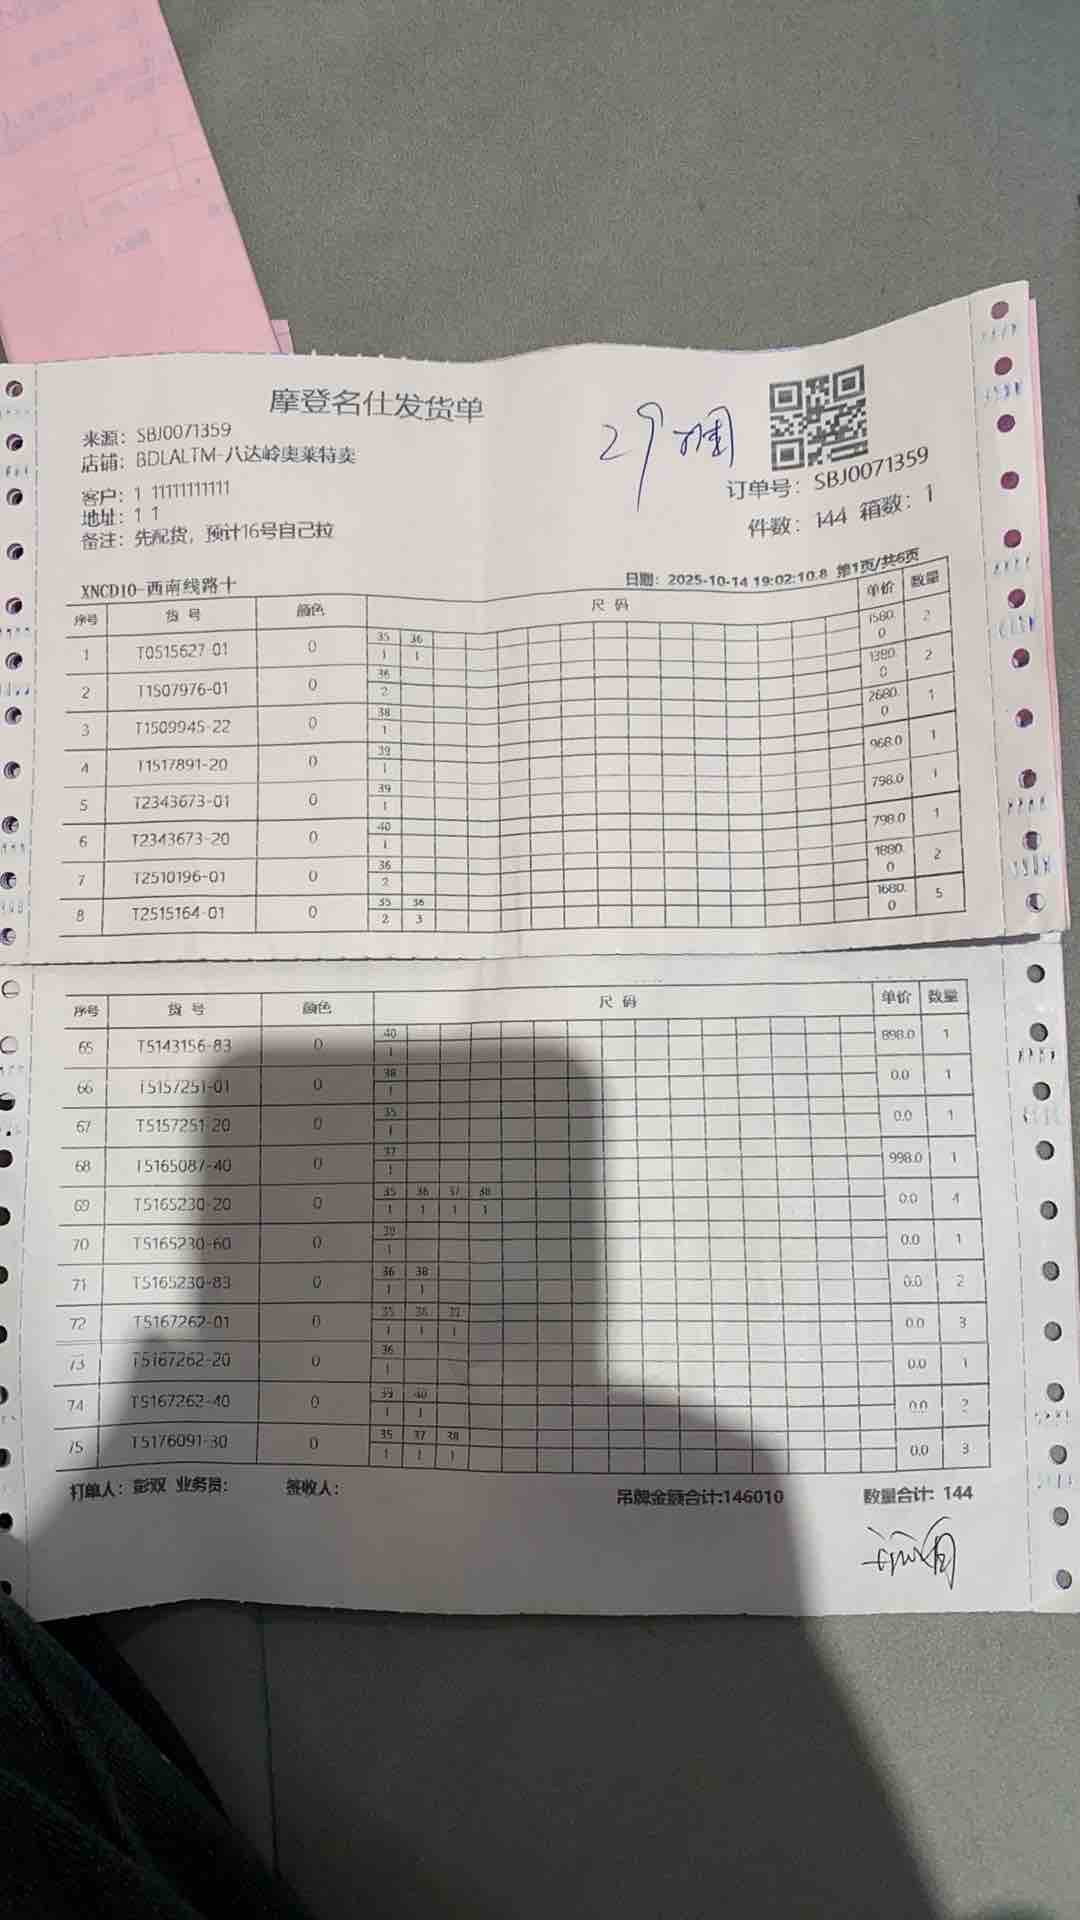 摩登名仕发货单
来源：SBJ0071359
店铺：BDLALTM-八达岭奥莱特卖
客户：1 11111111111
地址：1 1
备注：先配货，预计16号自己拉
29
订单号：SBJ0071359
件数：144 箱数：1
XNCD10-西南线路十
日期：2025-10-14 19:02:10.8 第1页/共6页
序号 货号 颜色 尺码 单价 数量
35 36
1 T0515627-01 0 1 1 1580.0 2
36
2 T1507976-01 0 2 1380.0 2
38
3 T1509945-22 0 1 2680.0 1
39
4 T1517891-20 0 1 968.0 1
39
5 T2343673-01 0 1 798.0 1
40
6 T2343673-20 0 1 798.0 1
36
7 T2510196-01 0 2 1880.0 2
35 36
8 T2515164-01 0 2 3 1680.0 5
序号 货号 颜色 尺码 单价 数量
40
65 T5143156-83 0 1 898.0 1
38
66 T5157251-01 0 1 0.0 1
35
67 T5157251-20 0 1 0.0 1
37
68 T5165087-40 0 1 998.0 1
35 36 37 38
69 T5165230-20 0 1 1 1 1 0.0 4
70 T5165230-60 0 1 0.0 1
36 38
71 T5165230-83 0 1 1 0.0 2
35 36 39
72 T5167262-01 0 1 1 1 0.0 3
36
73 T5167262-20 0 1 0.0 1
39 40
74 T5167262-40 0 1 1 0.0 2
35 37 38
75 T5176091-30 0 1 1 1 0.0 3
打单人：彭双 业务员： 签收人： 吊牌金额合计:146010 数量合计：144